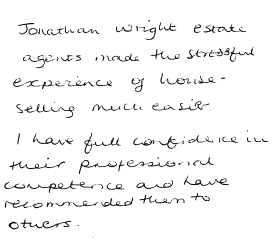 Jonathan Wright estate
agents made the stressful
experience of house-
selling much easier.
I have full confidence in
their professional
competence and have
recommended them to
others.